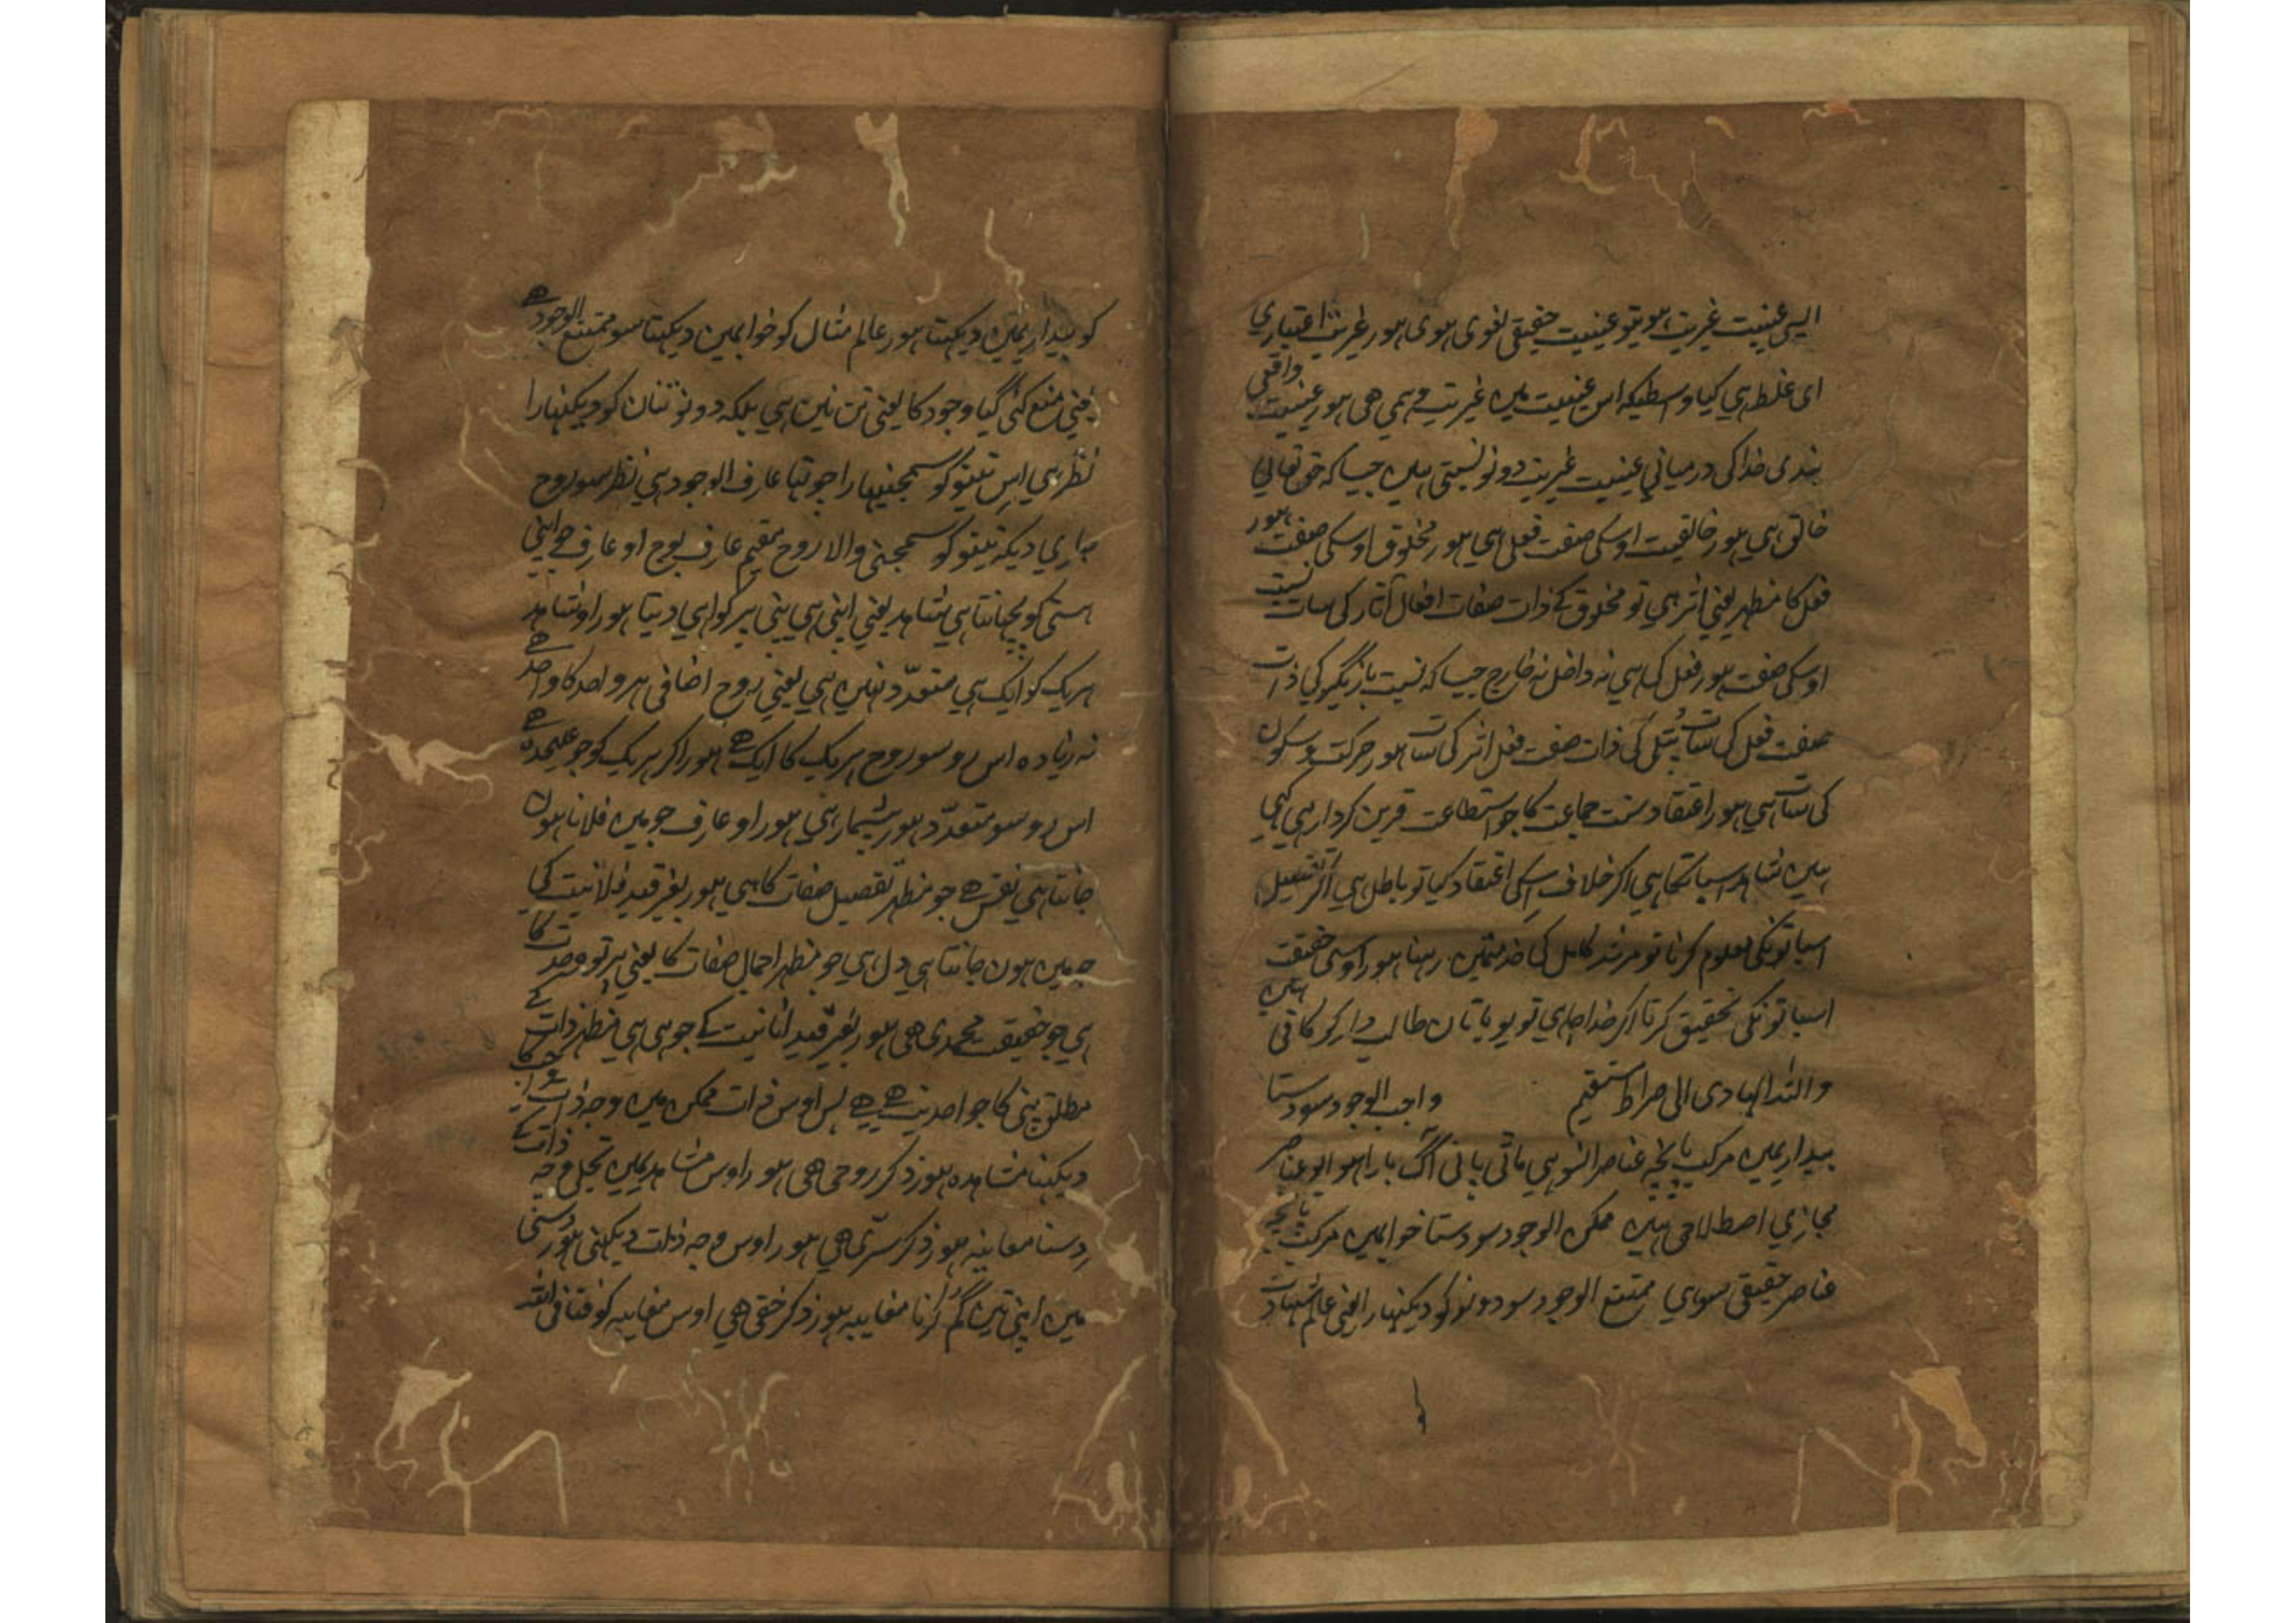 ایسی عینیت غیریت ہو تیو عینیت حقیقی لغوی ہوی ہور غیریت اعتباری
ای غلط ہی کیا واسطیکہ اس عینیت میں غیریت وہمی ھی ہور عینیت واقعی
بندی خداکی درمیانی عینیت غیریت دونو نسبتی ہیں جیسا کہ حق تعالی
خالق ہی ہور خالقیت اوسکی صفت فعل ہی ہور مخلوق اوسکی صفت ہور
فعل کا مظہر یعنی اثر ہی تو مخلوق کے ذات صفات افعال آثار کی سات نسبت
اوسکی صفت ہور فعل کا ہی نہ داخل نہ خارج جیسا کہ نسبت بازیگیر کی ذات
صفت فعل کی سات پتلی کی ذات صفت فعل اثر کی سات ہور حرکت و سکون
کی سات ہی ہور اعتقاد سنت جماعت کا جو استطاعت قرین کردار ہی کہی
ہیں شاہد اسبات کا ہی اگر خلاف اسکی اعتقاد کیا تو باطل ہی اگر تفصیل
اسباتونکی معلوم کرنا تو مرشد کامل کی خدمتمیں رہنا ہور اوسی حقیقت
اسباتونکی تحقیق کرنا اگر خدا چاہی تو یو باتان طالب دار کو کافی ہیں
واللہ الہادی الی صراط مستقیم واجب الوجود سو دستا
بیداریمیں مرکب پانچہ عناصر انسو ہی ماٹی پانی آگ بارا ہوا یو عناصر
مجازی اصطلاحی ہیں ممکن الوجود سو دستا خوابمیں مرکب پانچہ
عناصر حقیقی سوای ممتنع الوجود سو دونو کو دیکنہارا یعنی عالم شہادت
کو
کو بیداریمیں دیکہتا ہور عالم مثال کو خوابمیں دیکہتا سو ممتنع الوجود ھے
یعنی منع کئی گیا وجود کا یعنی تن نین ہی بلکہ دونو تنان کو دیکنہارا
نظر ہی اس تینو کو سمجنیہارا جو تہا عارف الوجود ہی نظر سو روح
جاری دیکہ تینو کو سمجنی والا روح مقیم عارف بوج او عارف جے اپنی
ہستی کو پچہانتا ہی شاہد یعنی اپنی ہی پنی پر گواہی دیتا ہور او شاہد
ہریک کو ایک ہی متعدّد نہیں ہی یعنی روح اضافی ہر واحد کا واحد ھے
نہ زیادہ اس رو سو روح ہریک کا ایک ھے ہور اگر ہریک کو جو علیحدہ ھے
اس رو سو متعدّد ہور شمار ہی ہور او عارف جو میں فلانا ہوں
جانتا ہی نفس ھے جو مظہر تفصیل صفات کا ہی ہور بغیر قید فلانیت کی
جو میں ہون جانتا ہی دل ہی جو مظہر اجمال صفات کا یعنی پرتو وحدت کا
ہی جو حقیقت محمدی ھی ہور بغیر قید انانیت کے جو ہی ہی مظہر ذات کے
مطلق پنی کا جو احدیت ھے پس اوس ذات ممکن میں وجہ ذات واجب کا
دیکہنا مشاہدہ ہور ذکر روحی ھی ہور اوس مشاہدیمیں تجلی وجہ ذات کے
دسنا معاینہ ہور ذکر سرّی ھی ہور اوس وجہ ذات دیکہنی ہور دسنی
میں اپنی تیں گم کرنا مغایبہ ہور ذکر خفی ھی اوس مغایبہ کو فنا فی اللہ